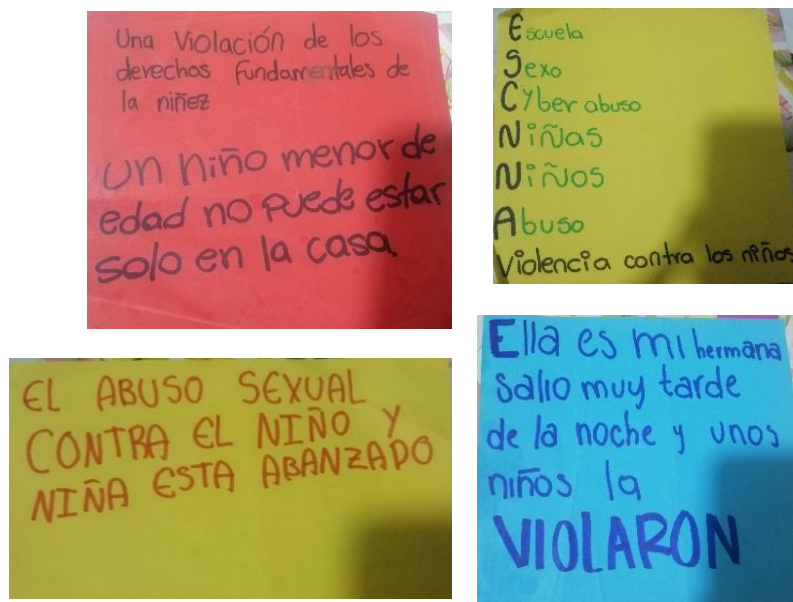 Una Violación de los
derechos fundamentales de
la niñez
un niño menor de
edad no puede estar
solo en la casa.
Escuela
Sexo
Cyber abuso
Niñas
Niños
Abuso
Violencia contra los niños
EL ABUSO SEXUAL
CONTRA EL NIÑO Y
NIÑA ESTA ABANZADO
Ella es mi hermana
salio muy tarde
de la noche y unos
niños la
VIOLARON